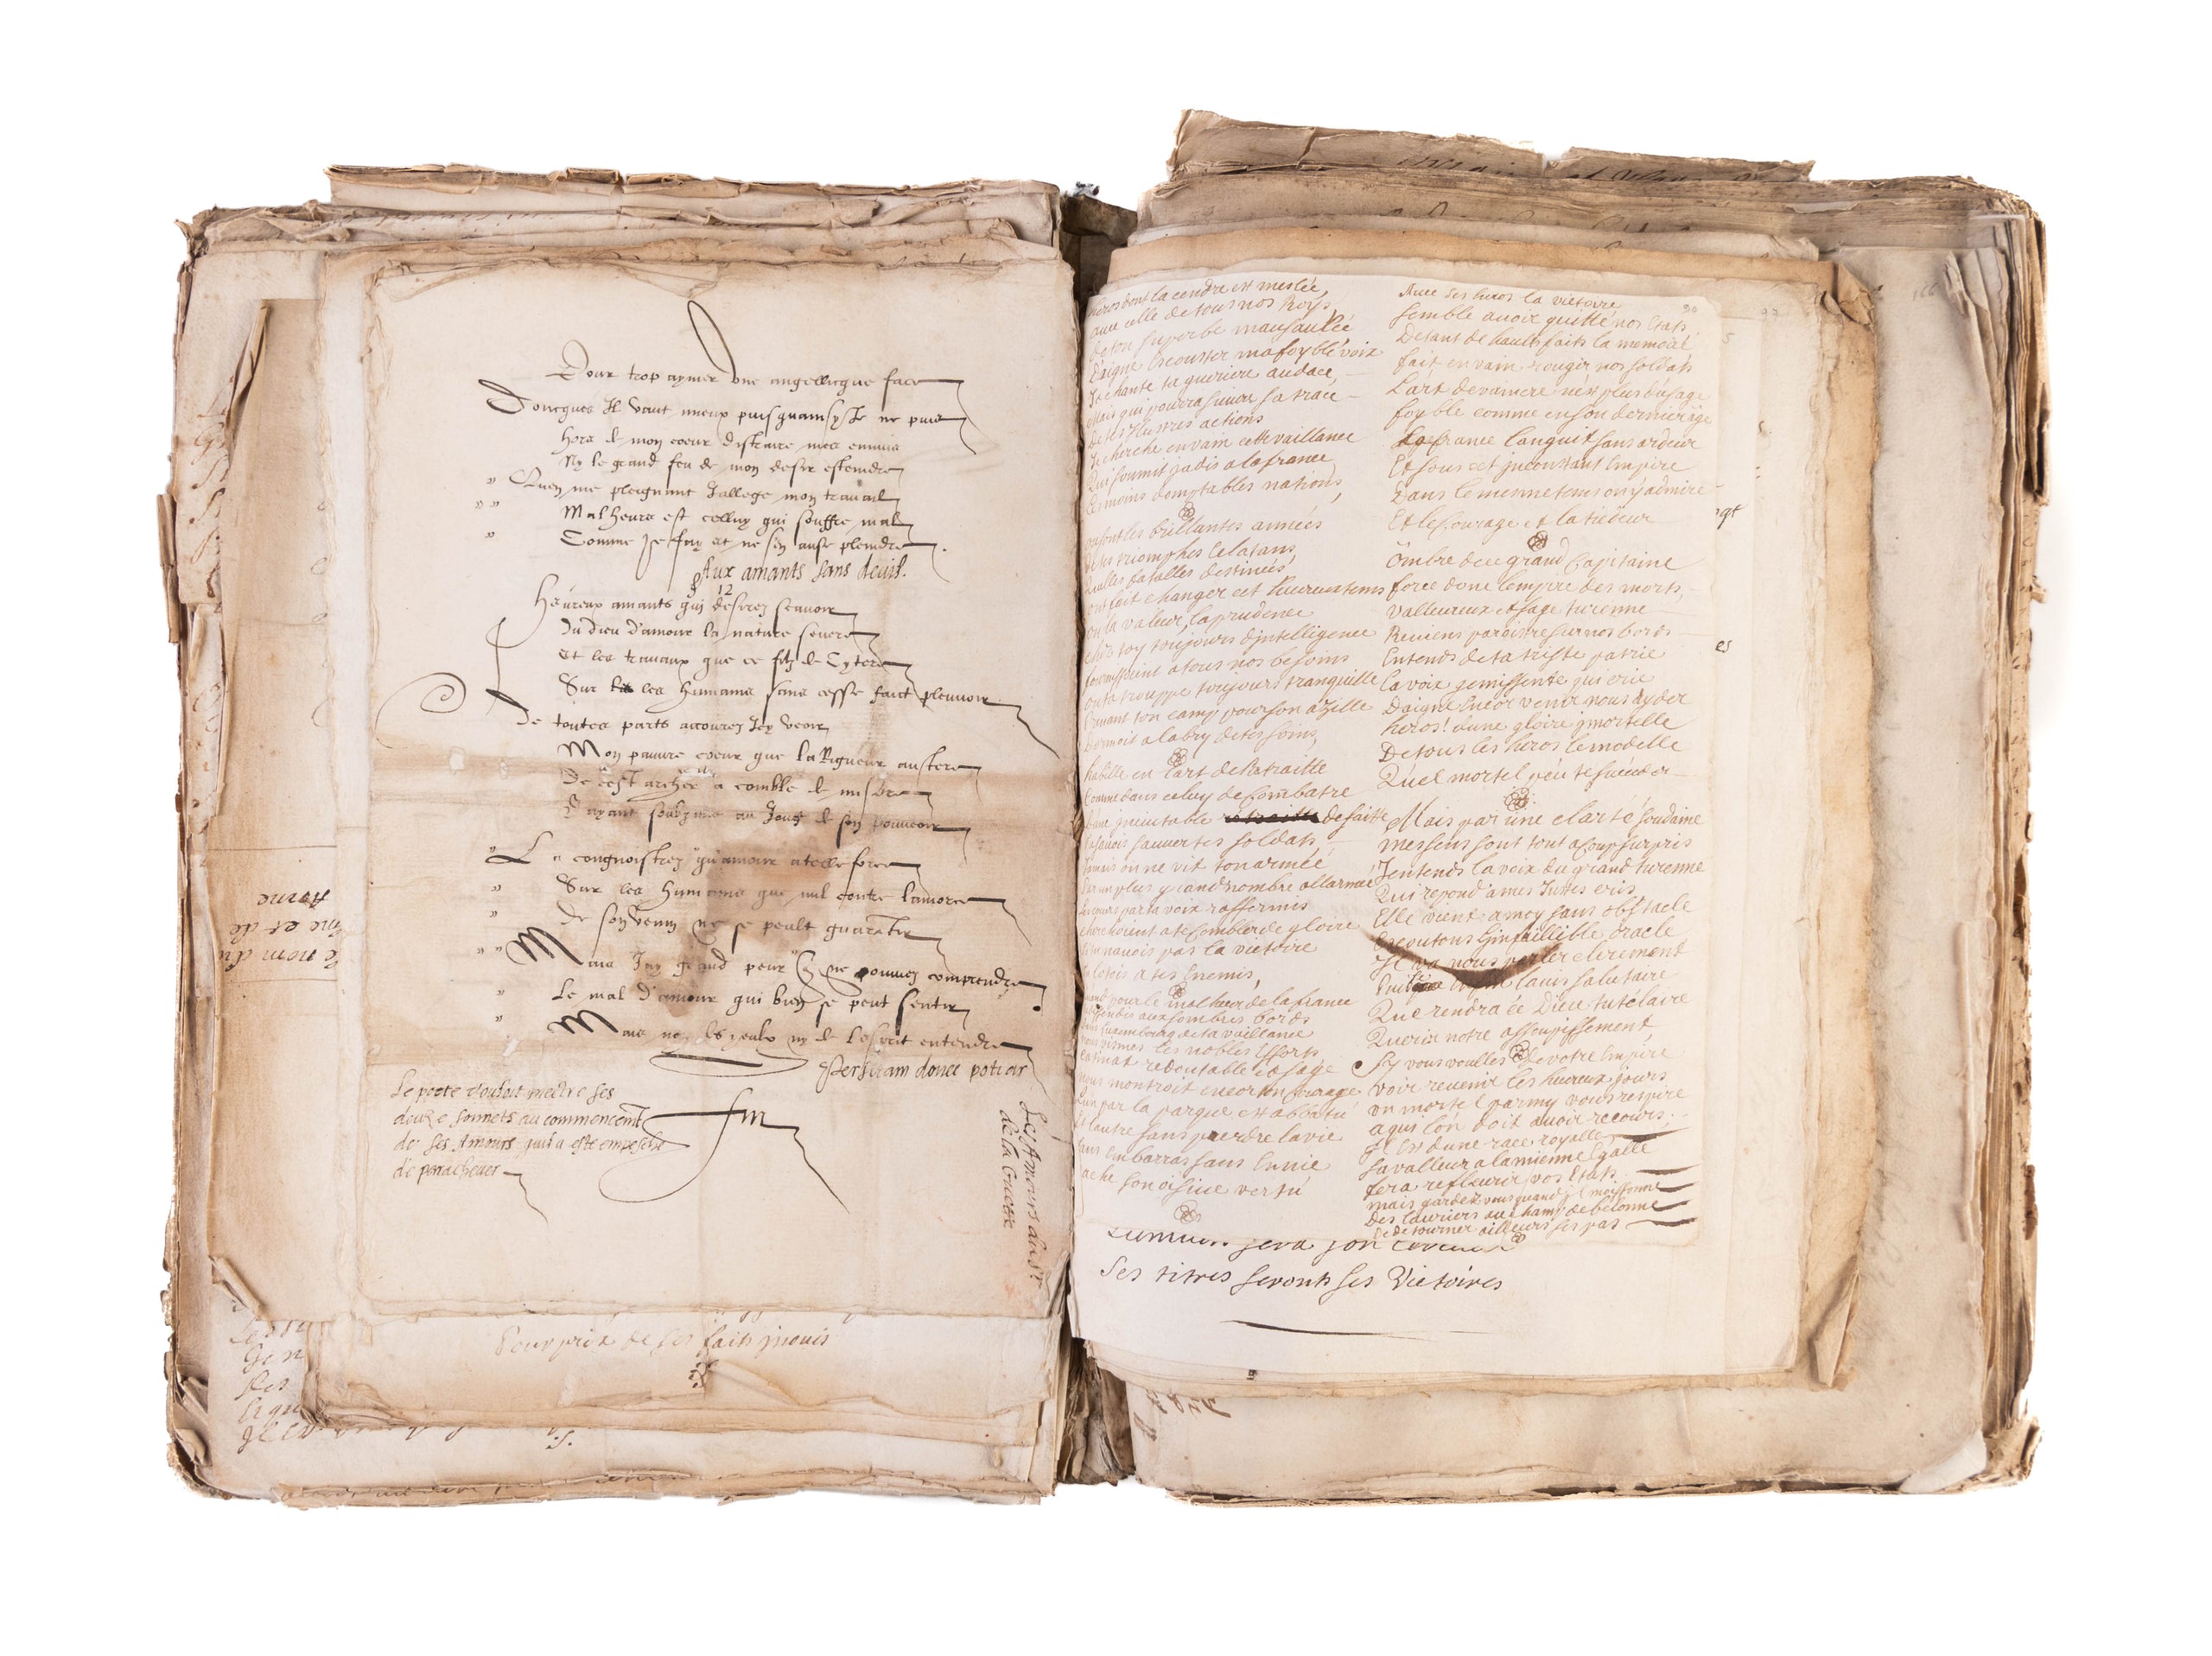 Pour trop aymer une angellicque face
Doncques Il vault mieux puisquainsy Je ne puis
hors de mon coeur distraire mes ennuis
Ny le grand feu de mon desir estaindre
" Quen me pleignant Jallege mon travail
" " Malheure est celluy qui souffre mal
" Comme Je fay et ne sen ause pleindre.
Aux amants sans deuil.
12
Heureux amants qui desirez scavoir
Du dieu d'amour la nature severe
Et les travaux que ce filz de Cytere
Sur les humains sans cesse faict pleuvoir
De toutes parts accourez Icy veoir
Mon pauvre coeur que la Rigueur austere
De cest archer a comblé de misere
L'ayant soubzmis au Joug de son pouvoir
" La congnoistrez qu'amour a telle force
" Sur les humains que nul contre lamorce
" De son venin ne se peult guarantir
" " Mais Jay grand peur que ne pouvez comprendre
" Le mal d'amour qui bien se peut sentir
" Mais non des yeulx ny de l'esprit entendre
Perficiam donec potiar
fin
Le poete vouloit mectre ses
douze sonnets au commencemt
de ses Amours quil a esté empesché
de parachever
Les Amours du Sr
de la
Pour prix de ses faits jnouis
heros dont la cendre est meslée,
avec celle de tous nos Roys,
de ton superbe mausaulée
Daigne Escouster ma foyble voix
Je chante ta guerriere audace,
Mais qui pourra suivre sa trace
De tes Jlustres actions
Je cherche en vain cette vaillance
Qui soumit jadis a la france
Les moins domptables nations,
ou sont les brillantes années
de tes triomphes Eclatans,
Quelles fatalles destinées
ont fait changer cet heureux tems
ou la valeur, la prudence
chés toy toujours d'jntelligence
fournissoient a tous nos besoins
ou ta trouppe toujours tranquille
Prenant ton camp pour son azille
Dormoit a labry de tes soins,
habille en l'art de Retraitte
Comme dans celuy de Combatre
d'une jnevitable defaitte
tu savois sauver tes soldats
Jamais on ne vit ton armée
Par un plus grand nombre allarmée
Les cours par ta voix raffermis
cherchoient a te combler de gloire
et tu n'avois pas la victoire
tu lotois a tes Enemis,
quand pour le malheur de la france
descendis aux sombres bords
dans Luxembourg de ta vaillance
nous vismes les nobles Efforts
Catinat redoutable et sage
nous montroit encor ton courage
L'un par la parque est abbatu
Et lautre sans perdre la vie
sans embarras sans Envie
cache son oisive vertu
Avec ses heros la victoire
semble avoir quitté nos Etats
De tant de hauts faits la memoire
fait en vain rougir nos soldats
L'art de vaincre n'est plus d'usage
foyble comme en son dernier âge
La france languit sans ardeur
Et sous cet jnconstant Empire
Dans le mesme tems on y admire
Et le courage et la tiedeur
ômbre de ce grand Capitaine
force donc lempire des morts,
valleureux et sage turenne
Reviens paroistre sur nos bords
Entends de ta triste patrie
La voix gemissente qui crie
Daigne Encor venir nous ayder
heros! d'une gloire jmortelle
De tous les heros le modelle
Quel mortel peu te succéder
Mais par une clarté soudaine
mes sens sont tout a coup surpris
J'entends la voix du grand turenne
Qui repond a mes Justes cris
Elle vient a moy sans obstacle
Escoutons l'infaillible oracle
Jl va nous parler clerement
l'avis salutaire
Que rendra ce Dieu tutélaire
Guerir notre assoupissement
Sy vous voulles de votre Empire
voir revenir les heureux jours
un mortel parmy vous respire
a qui l'on doit avoir recours;
Jl Est d'une race royalle,
sa valleur a la mienne Egalle
fera refleurir vos Etats
mais gardez vous quand jl moissonne
Des lauriers au champ de bélonne
De detourner ailleurs ses pas
L'univers sera son
Ses titres seront ses Victoires